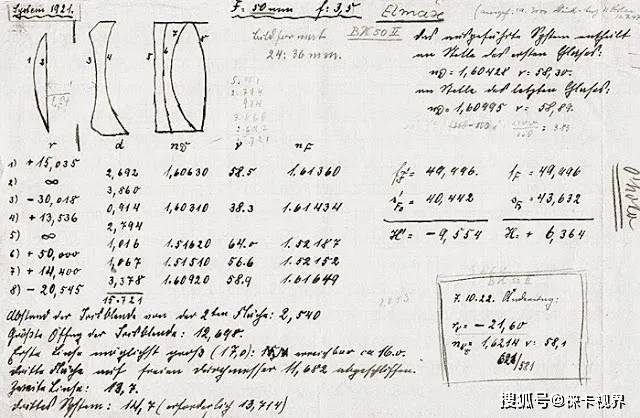 System 1921.
F = 50mm f: 3,5 Elmax
Bildformat
24:36 mm.
BK 50 II
Das ausgeführte System enthält
an Stelle des ersten Glases:
n_D = 1,60428 ν = 58,30.
an Stelle des letzten Glases:
n_D = 1,60995 ν = 58,89.
1 2 3 4 5 6 7 8
r d n_D ν n_F
1) + 15,035
2,692 1,60630 58.5 1.61360
2) ∞
3,860
3) - 30,018
0,914 1,60310 38.3 1.61434
4) + 13,536
2,794
5) ∞
1,016 1.51620 64.0 1.52187
6) + 50,000
1,067 1.51510 56.6 1.52152
7) + 14,400
3,378 1.60920 58.9 1.61649
8) - 20,545
15.721
f = 49,496. f = 49,496
s = 40,442 s = 43,632
H' = - 9,554 H = + 6,364
Abstand der Irisblende von der 2ten Fläche: 2,540
Größte Öffng der Irisblende: 12,698.
Erste Linse möglichst groß (17,0): erreichbar ca 16.0.
dritte Fläche auf freien Durchmesser 11,682 abgeschliffen.
Zweite Linse: 13,7.
drittes System: 14,7 (erforderlich 13,714)
7.10.22. Änderung:
r = - 21,60
n = 1,6214 ν = 58,1
搜狐号@徕卡视界